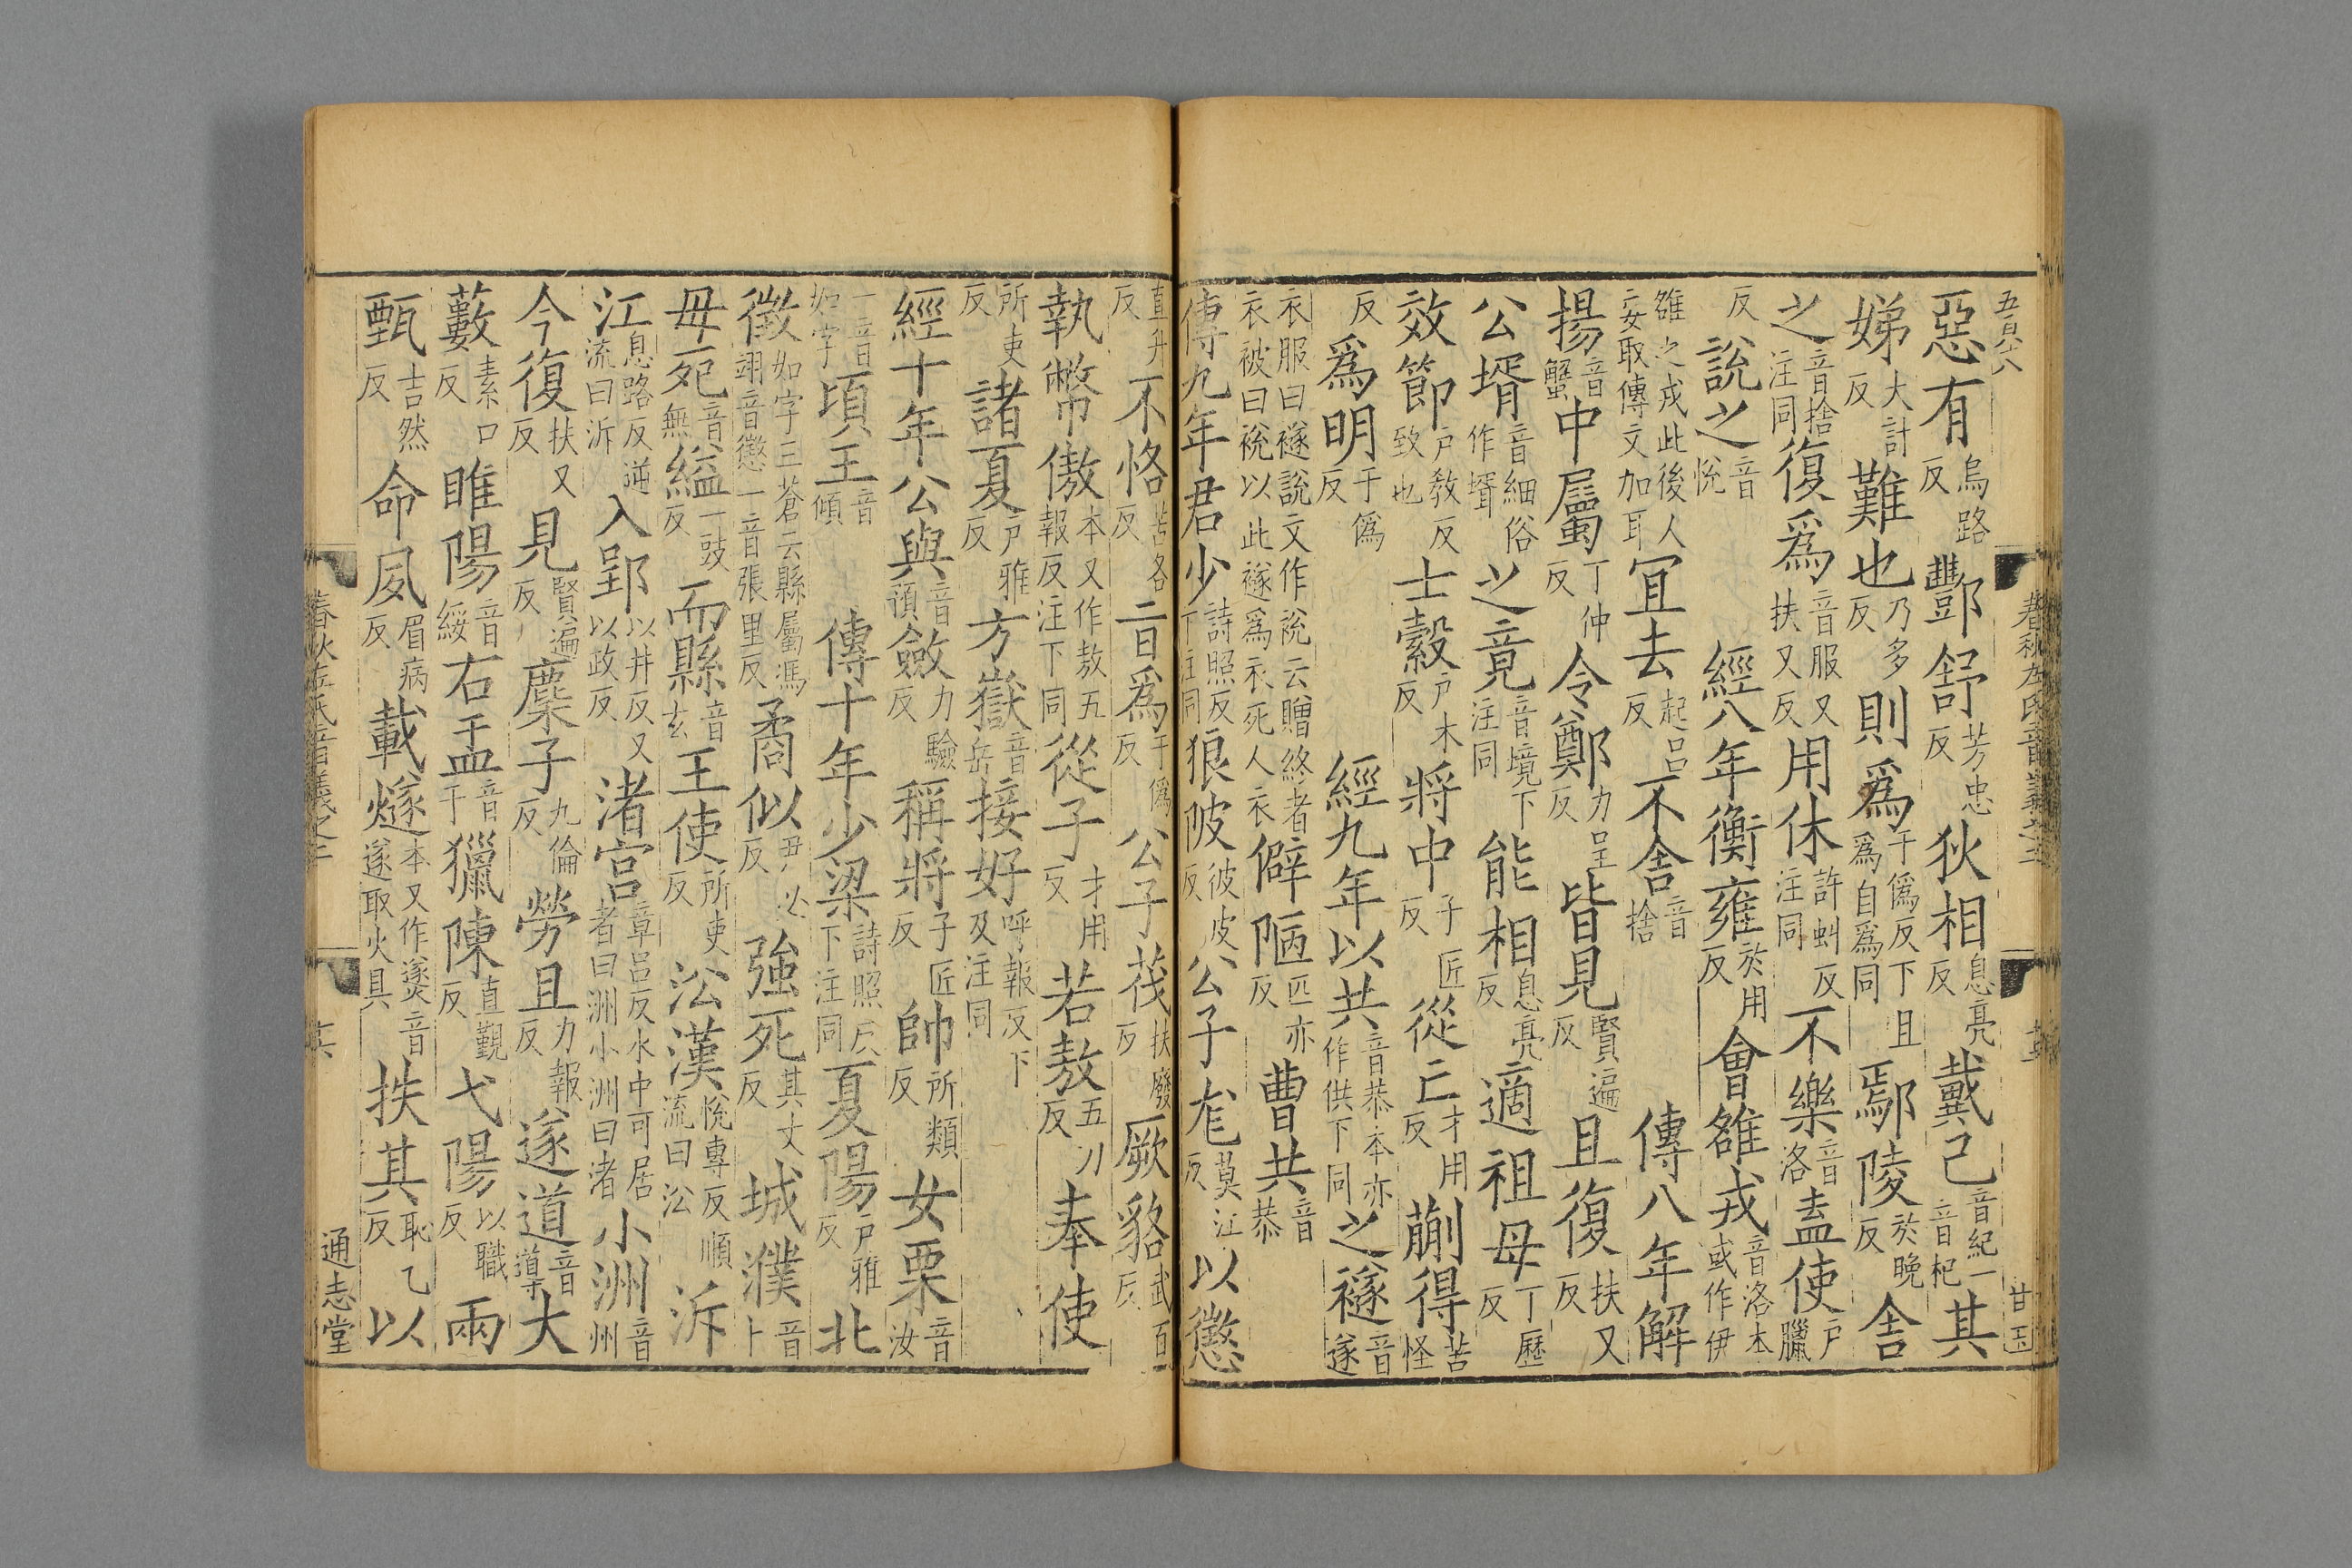 惡有烏路反酆舒芳忠反狄相息亮反戴己音紀一音杞其
娣大計反難也乃多反則爲于僞反下爲自爲同且鄢陵於晚反舍
之音捨注同復爲音服又扶又反用休許虯反注同不樂音洛盍使戶臘
反說之音悅經八年衡雍於用反會雒戎音洛本或作伊
雒之戎此後人妄取傳文加耳冝去起呂反不舍音捨傳八年解
揚音蟹中屬丁仲反令鄭力呈反皆見賢遍反且復扶又反
公壻音細俗作㙛之竟音境下注同能相息亮反適祖母丁歷反
效節戶敎反致也士縠戶木反將中子匠反從亡才用反蒯得苦怪
反爲明于僞反經九年以共音恭本亦作供下同之襚音遂
衣服曰襚說文作裞云贈終者衣被曰裞以此襚爲衣死人衣僻陋匹亦反曹共音恭
傳九年君少詩照反下注同狼陂彼皮反公子尨莫江反以懲
直升反不恪苦各反二百爲于僞反公子茷扶廢反厥貉武百反
執幣傲本又作敖五報反注下同從子才用反若敖五刀反奉使
所吏反諸夏戶雅反方嶽音岳接好呼報反下及注同
經十年公與音預斂力驗反稱將子匠反帥所類反女栗音汝
一音如字頃王音傾傳十年少梁詩照反下注同夏陽戶雅反北
徵如字三蒼云縣屬馮翊音懲一音張里反矞似尹必反強死其丈反城濮音卜
毋死音無縊一豉反而縣音玄王使所吏反沿漢悅專反順流曰沿泝
江息路反逆流曰泝入郢以井反又以政反渚宮章呂反水中可居者曰洲小洲曰渚小洲音州
今復扶又反見賢遍反麇子九倫反勞且力報反遂道音導大
藪素口反睢陽音綏右盂音于獵陳直覲反弋陽以職反兩
甄吉然反命夙眉病反載燧本又作㸂音遂取火具抶其恥乙反以
通志堂